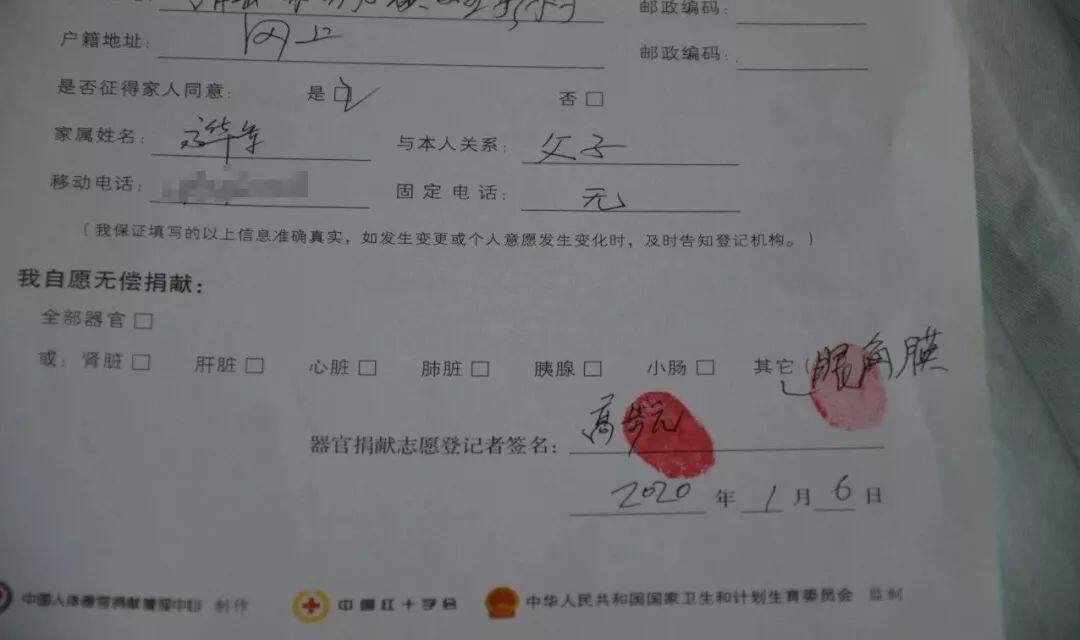 邮政编码:
户籍地址: 同上 邮政编码:
是否征得家人同意: 是☑ 否□
家属姓名: 与本人关系: 父子
移动电话: 固定电话: 无
(我保证填写的以上信息准确真实,如发生变更或个人意愿发生变化时,及时告知登记机构。)
我自愿无偿捐献:
全部器官□
或: 肾脏□ 肝脏□ 心脏□ 肺脏□ 胰腺□ 小肠□ 其它(眼角膜
器官捐献志愿登记者签名: 高
2020年1月6日
中国人体器官捐献管理中心 制作 中国红十字会 中华人民共和国国家卫生和计划生育委员会 监制